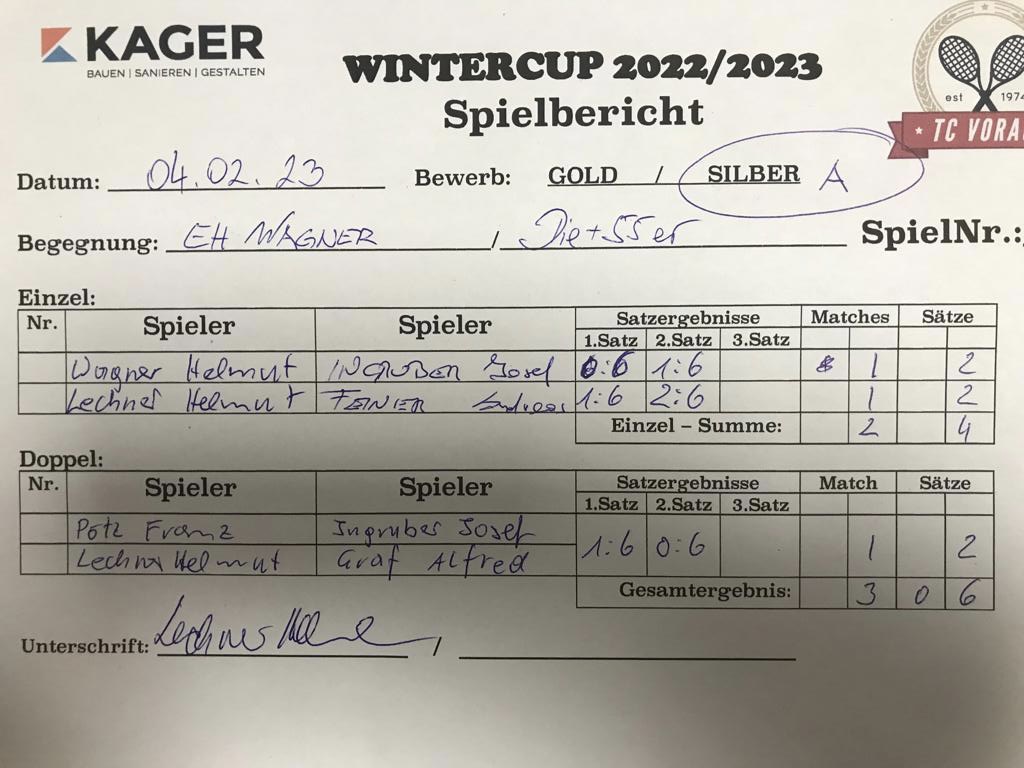 KAGER
BAUEN | SANIEREN | GESTALTEN
WINTERCUP 2022/2023
Spielbericht
est 1974
TC VORA
Datum: 04.02.23 Bewerb: GOLD / SILBER A
Begegnung: EH WAGNER / Die+55er SpielNr.:
Einzel:
Nr. Spieler Spieler Satzergebnisse Matches Sätze
1.Satz 2.Satz 3.Satz
Wagner Helmut INGRUBER Josef 0:6 1:6 1 2
Lechner Helmut Andreas 1:6 2:6 1 2
Einzel – Summe: 2 4
Doppel:
Nr. Spieler Spieler Satzergebnisse Match Sätze
1.Satz 2.Satz 3.Satz
Potz Franz Ingruber Josef
1:6 0:6 1 2
Lechner Helmut Graf Alfred
Gesamtergebnis: 3 0 6
Unterschrift: Lechner /